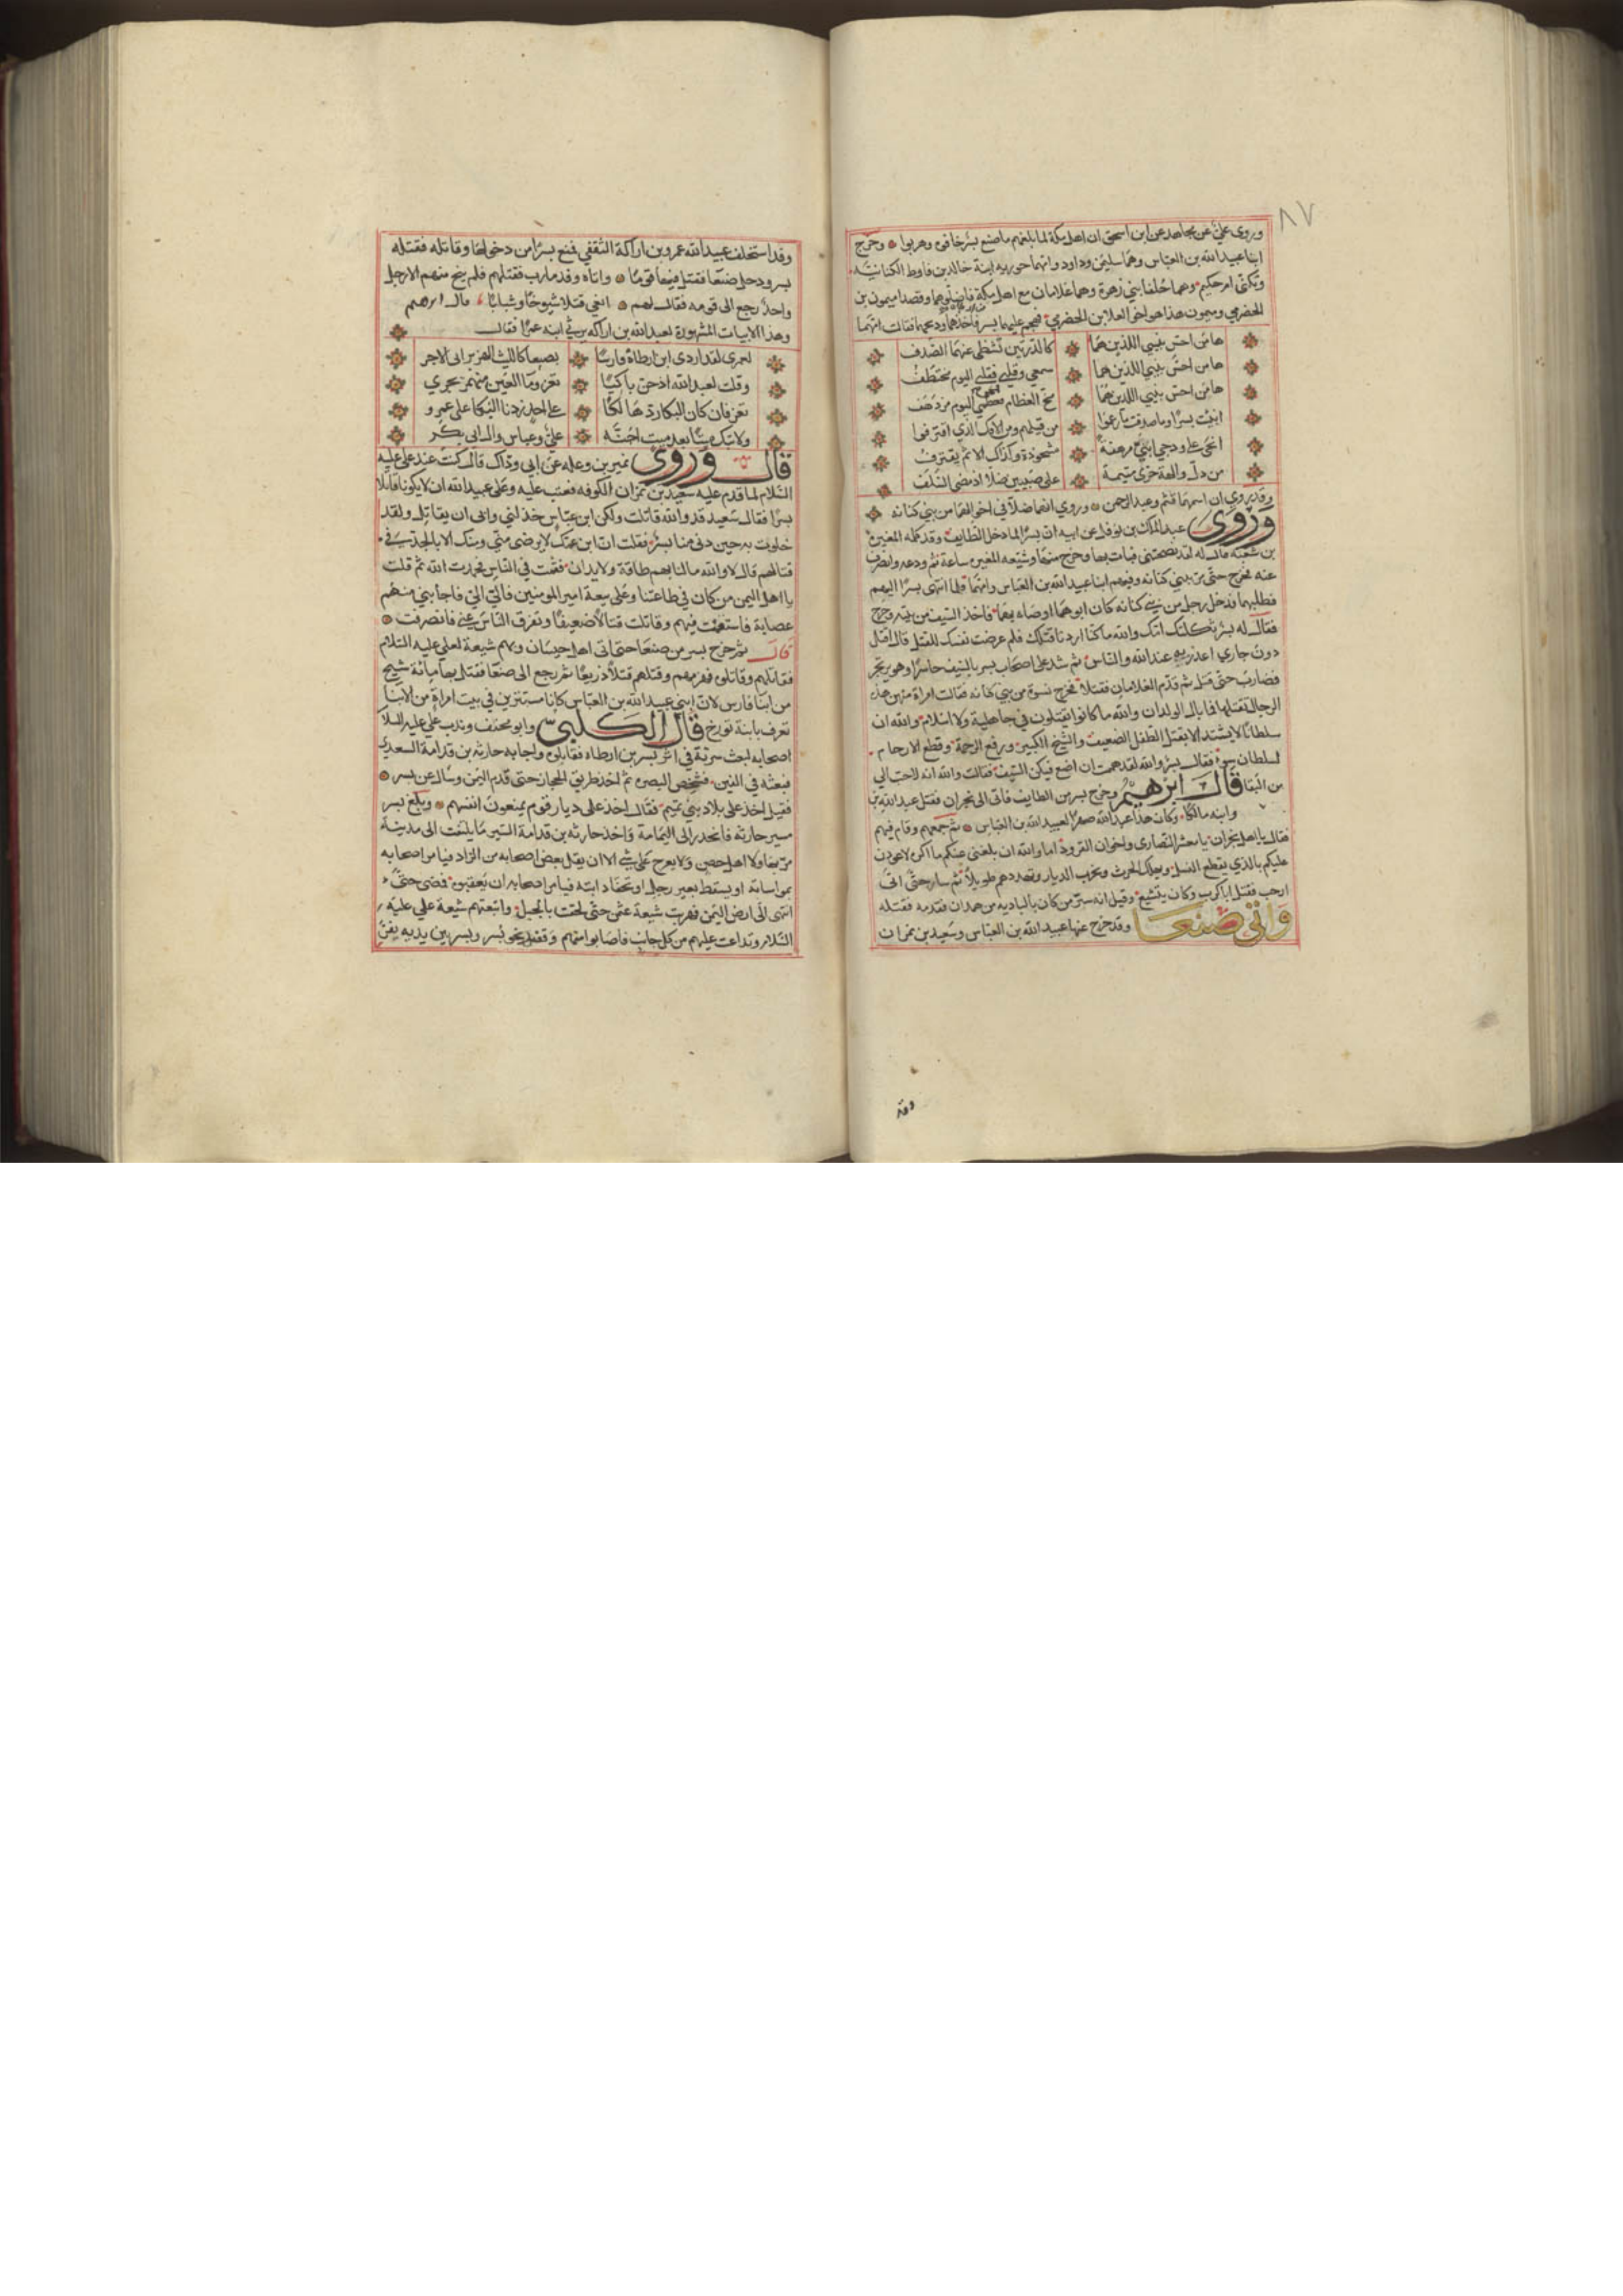 ٨٧
وروى علي عن مجاهد عن ابن اسحق ان اهل مكة لما بلغهم ما صنع بسر خافوه وهربوا وخرج
ابنا عبيد الله بن العباس وهما سليمن وداود وامهما حوريه ابنة خالد بن قارظ الكنانية
وتكنى ام حكيم وهما حلفا بني زهرة وهما غلامان مع اهل مكة فاضلوهما وقصدا ميمون بن
الحضرمي وميمون هذا هو اخو العلا بن الحضرمي فهجم عليهما بسر فاخذهما وذبحهما فقالت امهما
ها من احس بنيي اللذين هما كالدرتين تشظى عنهما الصدف
ها من احس بنيي اللذين هما سمعي وقلبي فقلبي اليوم مختطف
ها من احس بنيي اللذين هما مخ العظام فمخي اليوم مزدهف
انبئت بسرا وما صدقت ما زعموا من قيلهم ومن الافك الذي اقترفوا
انحى على ودجي ابنيَّ مرهفة مشحوذة وكذاك الاثم يقترف
من دل والهة حرى متيمة على صبيين ضلا اذ مضى السلف
وقد روي ان اسمهما قثم وعبد الرحمن وروي انهما ضلا في اخوالهما من بني كنانه
وروى عبد الملك بن نوفل عن ابيه ان بسرا لما دخل الطايف وقد كلمه المغيرة
بن شعبه قال له لقد نصحتني فبات بها وخرج منها وشيعه المغيره ساعة ثم ودعه وانصرف
عنه فخرج حتى مر ببني كنانه وفيهم ابنا عبيد الله بن العباس وامهما فلما انتهى بسرا اليهم
فطلبهما فدخل رجل من بني كنانه كان ابوهما اوصاه بهما فاخذ السيف من بيته وخرج
فقال له بسر ثكلتك امك والله ما كنا اردنا قتلك فلم عرضت نفسك للقتل قال اقتل
دون جاري اعذر لي عند الله والناس ثم شد على اصحاب بسر بالسيف حاسرا وهو يرتجز
فضارب حتى قتل ثم قدم الغلامان فقتلا فخرج نسوة من بني كنانه فقالت امراة منهن هذه
الرجال تقتلها فما بال الولدان والله ما كانوا يقتلون في جاهلية ولا اسلام والله ان
سلطانا لا يشتد الا بقتل الطفل الضعيف والشيخ الكبير ورفع الرحمة وقطع الارحام
لسلطان سوء فقال بسر والله لقد هممت ان اضع فيكن السيف فقالت والله انه لاحب الي
من البقا قال ابرهيم وخرج بسر من الطايف فاتى الى نجران فقتل عبد الله بن
وابنه مالكا وكان هذا عبد الله صهرا لعبيد الله بن العباس ثم جمعهم وقام فيهم
فقال يا اهل نجران يا معشر النصارى واخوان القرود اما والله ان بلغني عنكم ما اكره لاعودن
عليكم بالذي يقطع النسل ويهلك الحرث ويخرب الديار وتهددهم طويلا ثم سار حتى اتى
ارحب فقتل ابا كرب وكان يتشيع وقيل انه سيد من كان بالباديه من همدان فقدمه فقتله
واتى صنعا وقد خرج عنها عبيد الله بن العباس وسعيد بن نمران
وقد
وقد استخلف عبيد الله عمرو بن اراكة الثقفي فمنع بسرا من دخولها وقاتله فقتله
بسر ودخل صنعا فقتل فيها قوما واتاه وفد مارب فقتلهم فلم ينج منهم الا رجل
واحد رجع الى قومه فقال لهم انعي قتلا شيوخا وشبابا قال ابرهيم
وهذا الابيات المشهورة لعبد الله بن اراكه يرثي ابنه عمرا فقال
لعمري لقد اردى ابن ارطاة فارسا بصنعا كالليث الهزبر ابي الاجر
وقلت لعبد الله اذ حن باكيا تعز وما العين منهمر يجري
تعز فان كان البكا رد هالكا على احد زدنا البكا على عمرو
ولا تبك ميتا بعد ميت اجنه علي وعباس وال ابي بكر
قال وروى نمير بن وعله عن ابي وداك قال كنت عند علي عليه
السلام لما قدم عليه سعيد بن نمران الكوفه فعتب عليه وعلى عبيد الله ان لا يكونا قاتلا
بسرا فقال سعيد قد والله قاتلت ولكن ابن عباس خذلني وابى ان يقاتل ولقد
خلوت به حين دنى منا بسر فقلت ان ابن عمك لا يرضى مني ومنك الا بالجد في
قتالهم قال لا والله ما لنا بهم طاقة ولا يدان فقمت في الناس فحمدت الله ثم قلت
يا اهل اليمن من كان في طاعتنا وعلى بيعة امير المومنين فالي الي فاجابني منهم
عصابة فاستقدمت فيهم وقاتلت قتالا ضعيفا وتفرق الناس عني فانصرفت
قال ثم خرج بسر من صنعا حتى اتى اهل جيسان وهم شيعة لعلي عليه السلام
فقاتلهم وقاتلوه فهزمهم وقتلهم قتلا ذريعا ثم رجع الى صنعا فقتل بها مائة شيخ
من ابنا فارس لان ابني عبيد الله بن العباس كانا مستترين في بيت امراة من الابنا
تعرف بابنة بزرج قال الكلبي وابو مخنف وندب علي عليه السلام
اصحابه لبعث سرية في اثر بسر بن ارطاه فتثاقلوا واجابه حارثه بن قدامة السعدي
فبعثه في الفين فشخص البصره ثم اخذ طريق الحجاز حتى قدم اليمن وسال عن بسر
فقيل اخذ على بلاد بني تميم فقال اخذ على ديار قوم يمنعون انفسهم وبلغ بسر
مسير حارثه فانحدر الى اليمامة واخذ حارثه بن قدامة السير ما يلتفت الى مدينة
مر بها ولا اهل حصن ولا يعرج على شي الا ان يقل بعض اصحابه من الزاد فيامر اصحابه
بمواساته او يسقط بعير رجل او تحفا دابته فيامر اصحابه ان يعقبوه فمضى حتى
انتهى الى ارض اليمن فهربت شيعة عثمن حتى لحقت بالجبل واتبعتهم شيعة علي عليه
السلام وتداعت عليهم من كل جانب فاصابوا منهم وقصد نحو بسر وبسر بين يديه يفر